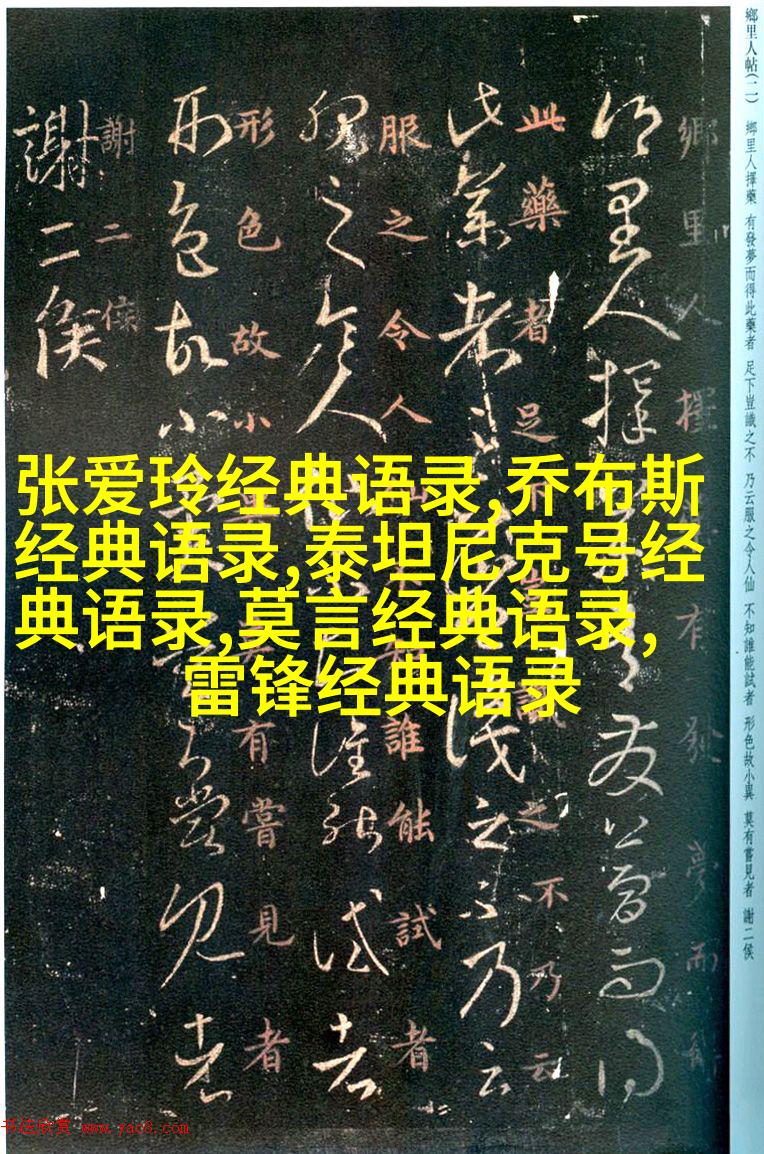 鄉里人帖(二) 鄉里人擇藥 有發夢而得此藥者 足下豈識之不 乃云服之令人仙 不知誰能試者 形色故小異 莫有嘗見者 謝二侯
鄉里人擇
有發夢而
此藥者足下
之不乃云
服之令人
誰能試者
形色故小
有嘗見者
謝二侯
张爱玲经典语录,乔布斯
经典语录,泰坦尼克号经
典语录,莫言经典语录,
雷锋经典语录
书法欣赏 www.yac8.com